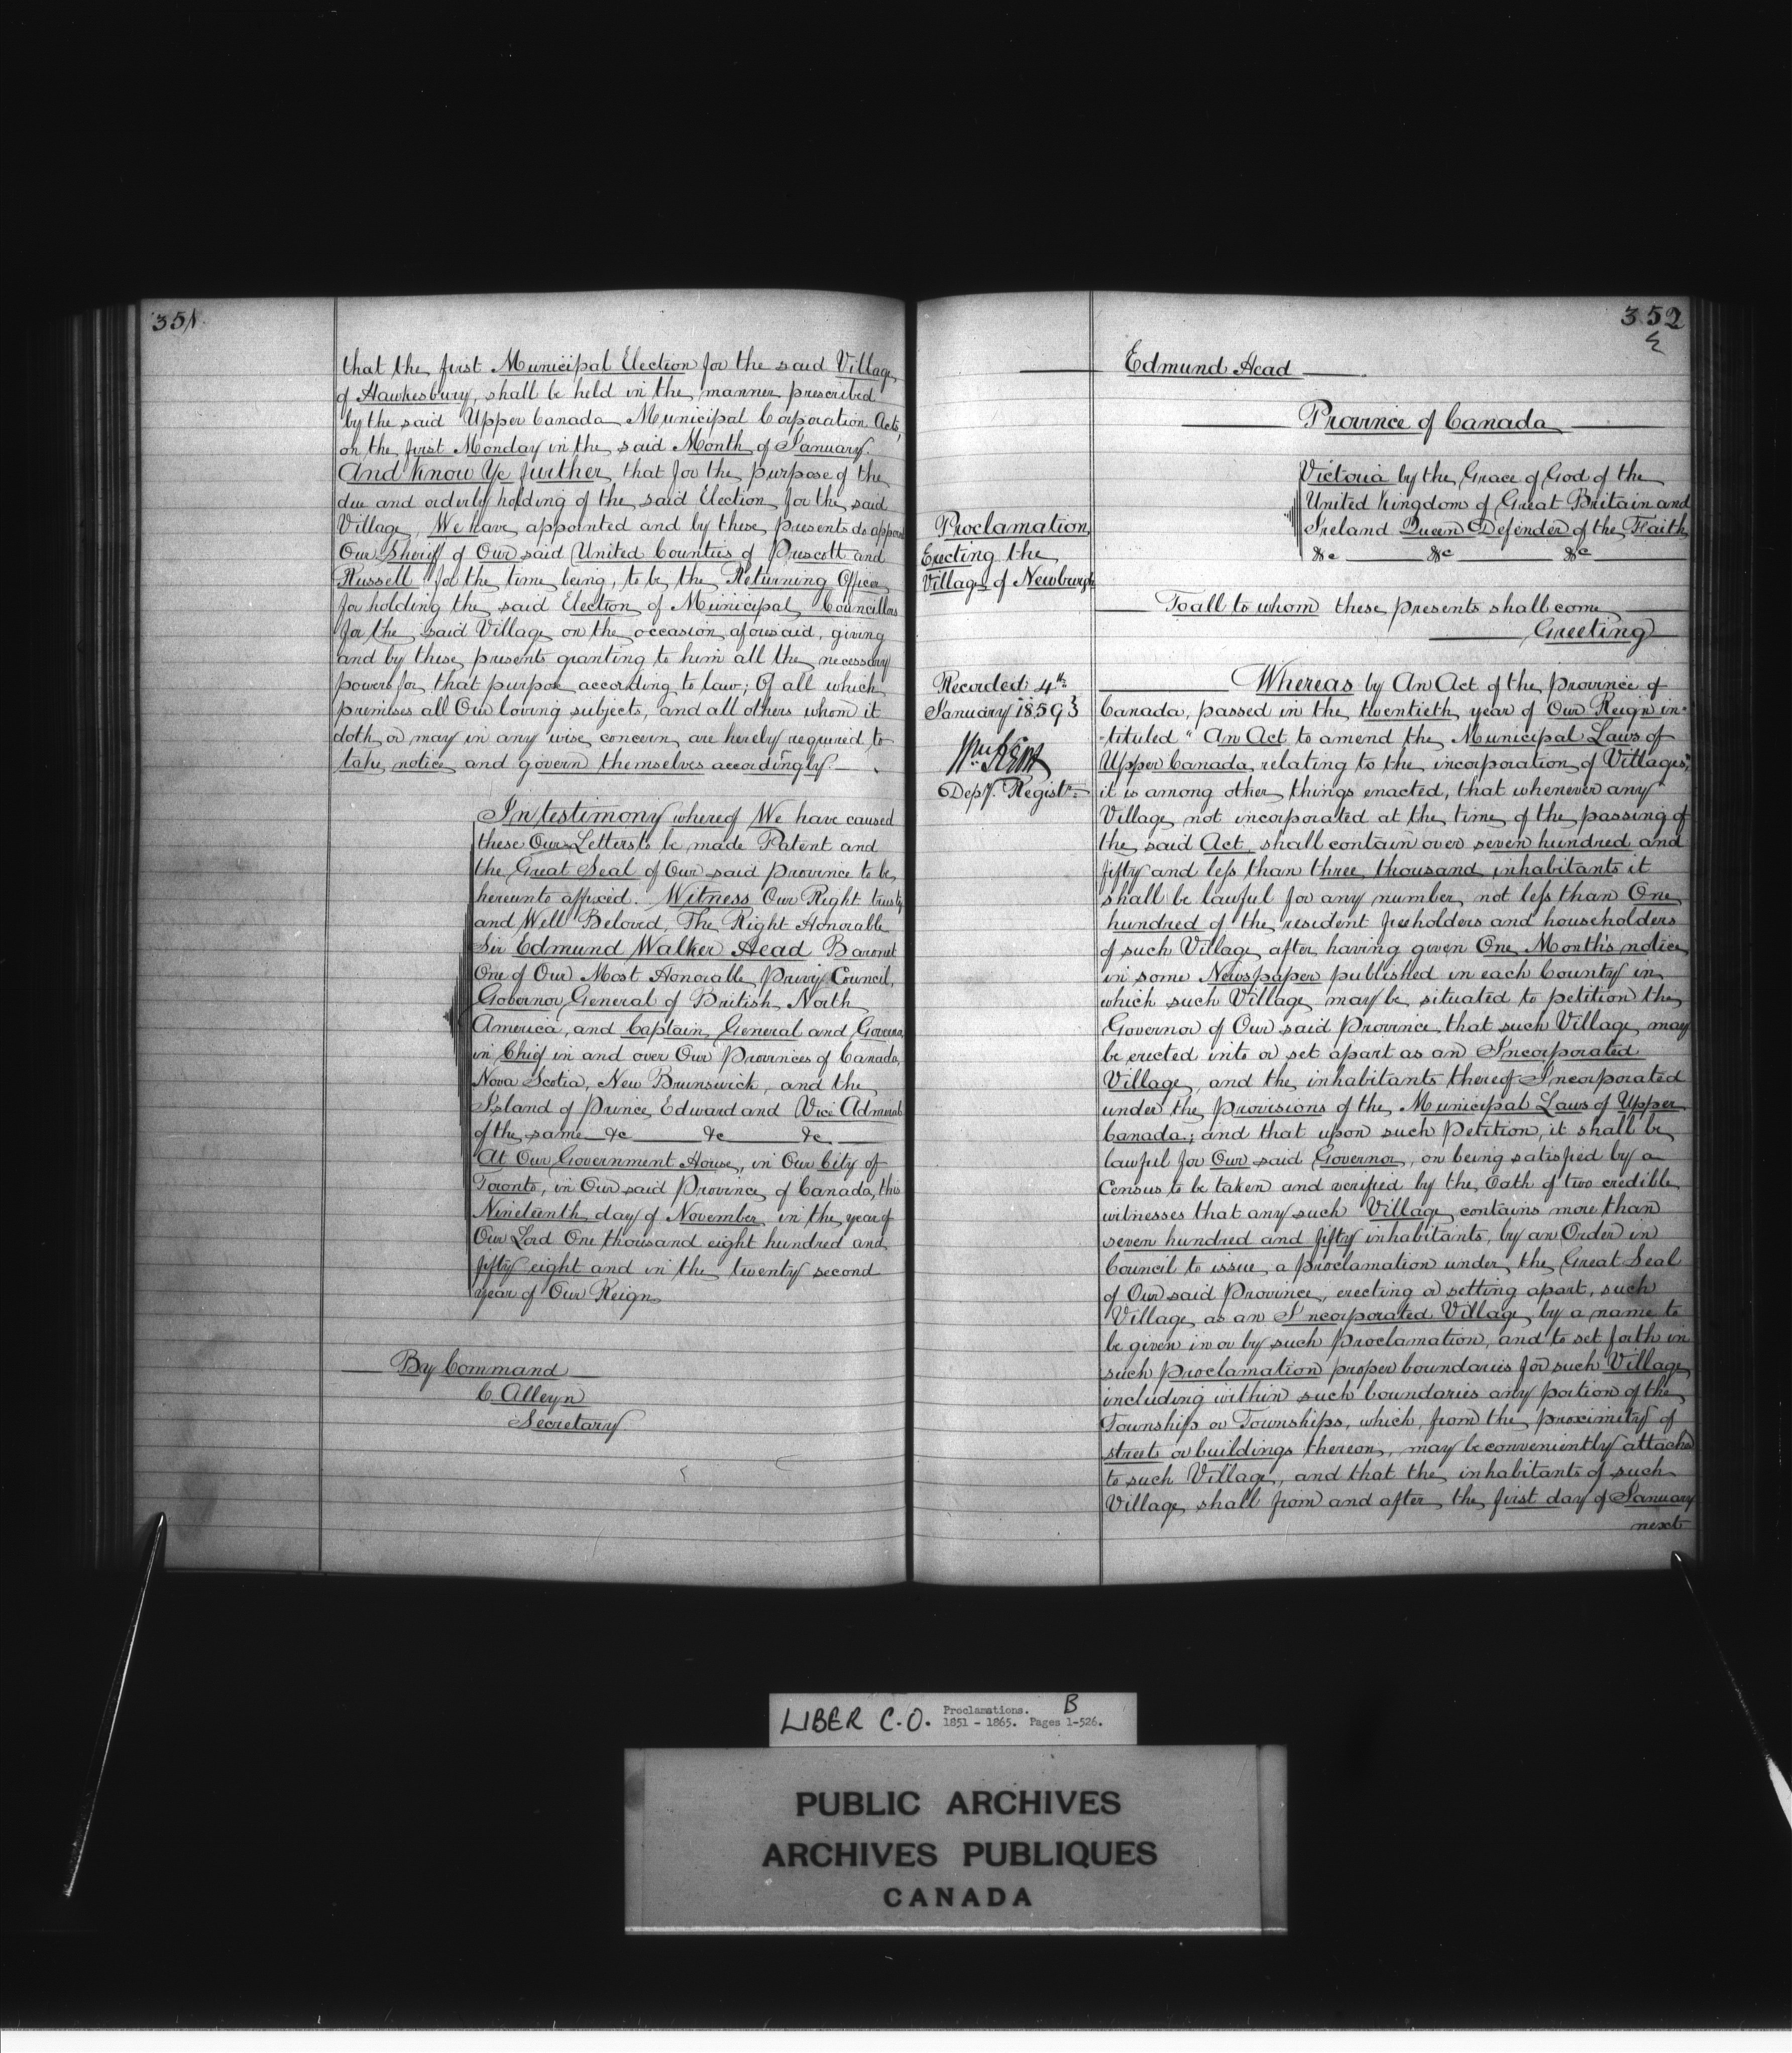 351
that the first Municipal Election for the said Village
of Hawkesbury, shall be held in the manner prescribed
by the said Upper Canada Municipal Corporation Acts,
on the first Monday in the said Month of January.
And Know Ye further that for the purpose of the
due and orderly holding of the said Election for the said
Village, We have appointed and by these presents do appoint
Our Sheriff of Our said United Counties of Prescott and
Russell for the time being, to be the Returning Officer
for holding the said Election of Municipal Councillors
for the said Village on the occasion aforesaid, giving
and by these presents granting to him all the necessary
powers for that purpose according to law; Of all which
premises all Our loving subjects, and all others whom it
doth or may in any wise concern are hereby required to
take notice and govern themselves accordingly.
In testimony whereof We have caused
these Our Letters to be made Patent and
the Great Seal of Our said Province to be
hereunto affixed. Witness Our Right trusty
and Well Beloved, The Right Honorable
Sir Edmund Walker Head Baronet
One of Our Most Honorable Privy Council,
Governor General of British North
America, and Captain General and Governor
in Chief in and over Our Provinces of Canada,
Nova Scotia, New Brunswick, and the
Island of Prince Edward and Vice Admiral
of the same &c &c &c
At Our Government House, in Our City of
Toronto, in Our said Province of Canada, this
Nineteenth day of November in the year of
Our Lord One thousand eight hundred and
fifty eight and in the twenty second
year of Our Reign
By Command
C. Alleyn
Secretary
352
Edmund Head
Province of Canada
Victoria by the Grace of God of the
United Kingdom of Great Britain and
Ireland Queen Defender of the Faith
&c &c &c
Proclamation
Erecting the
Village of Newburgh
To all to whom these presents shall come
Greeting
Recorded 4th
January 1859
Wm. Kent
Depy. Registr.
Whereas by An Act of the Province of
Canada, passed in the twentieth year of Our Reign in-
-tituled "An Act to amend the Municipal Laws of
Upper Canada relating to the incorporation of Villages,"
it is among other things enacted, that whenever any
Village not incorporated at the time of the passing of
the said Act, shall contain over seven hundred and
fifty and less than three thousand inhabitants it
shall be lawful for any number not less than One
hundred of the resident freeholders and householders
of such Village after having given One Month's notice
in some Newspaper published in each County in
which such Village may be situated to petition the
Governor of Our said Province that such Village may
be erected into or set apart as an Incorporated
Village, and the inhabitants thereof Incorporated
under the provisions of the Municipal Laws of Upper
Canada; and that upon such Petition, it shall be
lawful for Our said Governor, on being satisfied by a
Census to be taken and verified by the Oath of two credible
witnesses that any such Village contains more than
seven hundred and fifty inhabitants, by an Order in
Council to issue a proclamation under the Great Seal
of Our said Province, erecting or setting apart, such
Village as an Incorporated Village by a name to
be given in or by such Proclamation, and to set forth in
such Proclamation proper boundaries for such Village
including within such boundaries any portion of the
Township or Townships, which, from the proximity of
streets or buildings thereon, may be conveniently attached
to such Village, and that the inhabitants of such
Village shall from and after the first day of January
next
LIBER C.O. Proclamations. B
1851 - 1865. Pages 1-526.
PUBLIC ARCHIVES
ARCHIVES PUBLIQUES
CANADA